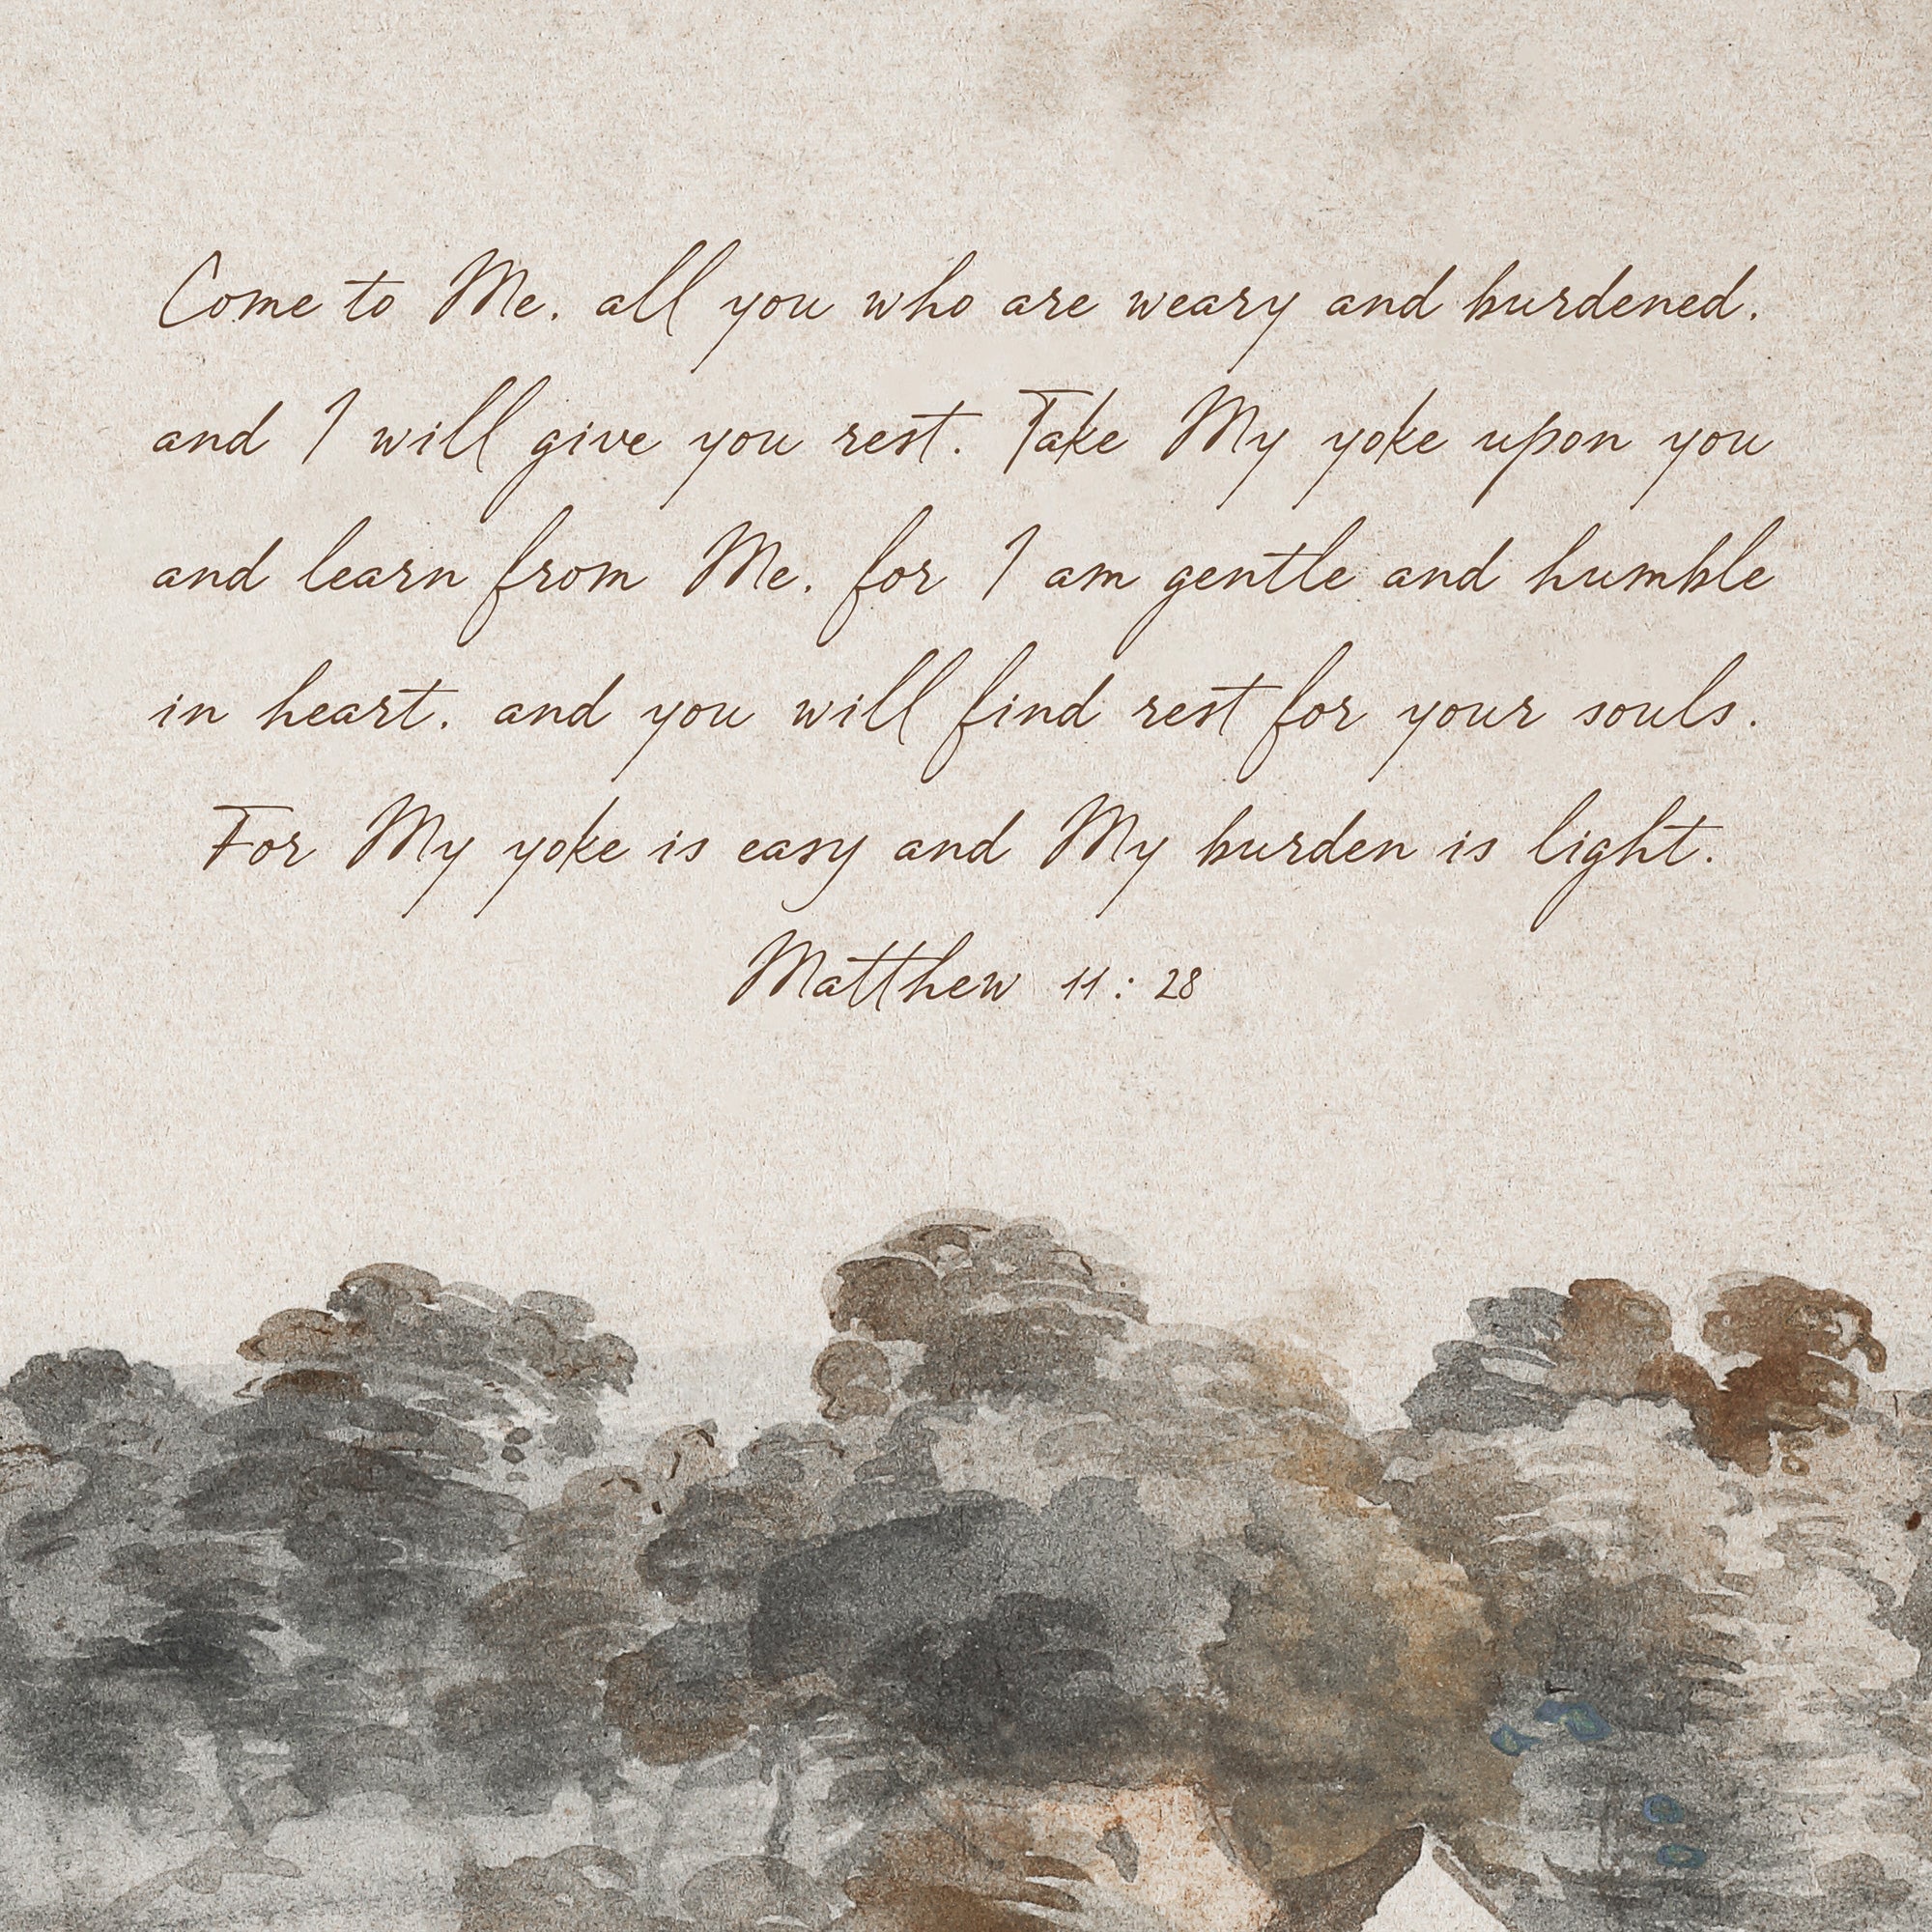 Come to Me, all you who are weary and burdened,
and I will give you rest. Take My yoke upon you
and learn from Me, for I am gentle and humble
in heart, and you will find rest for your souls.
For My yoke is easy and My burden is light.
Matthew 11: 28